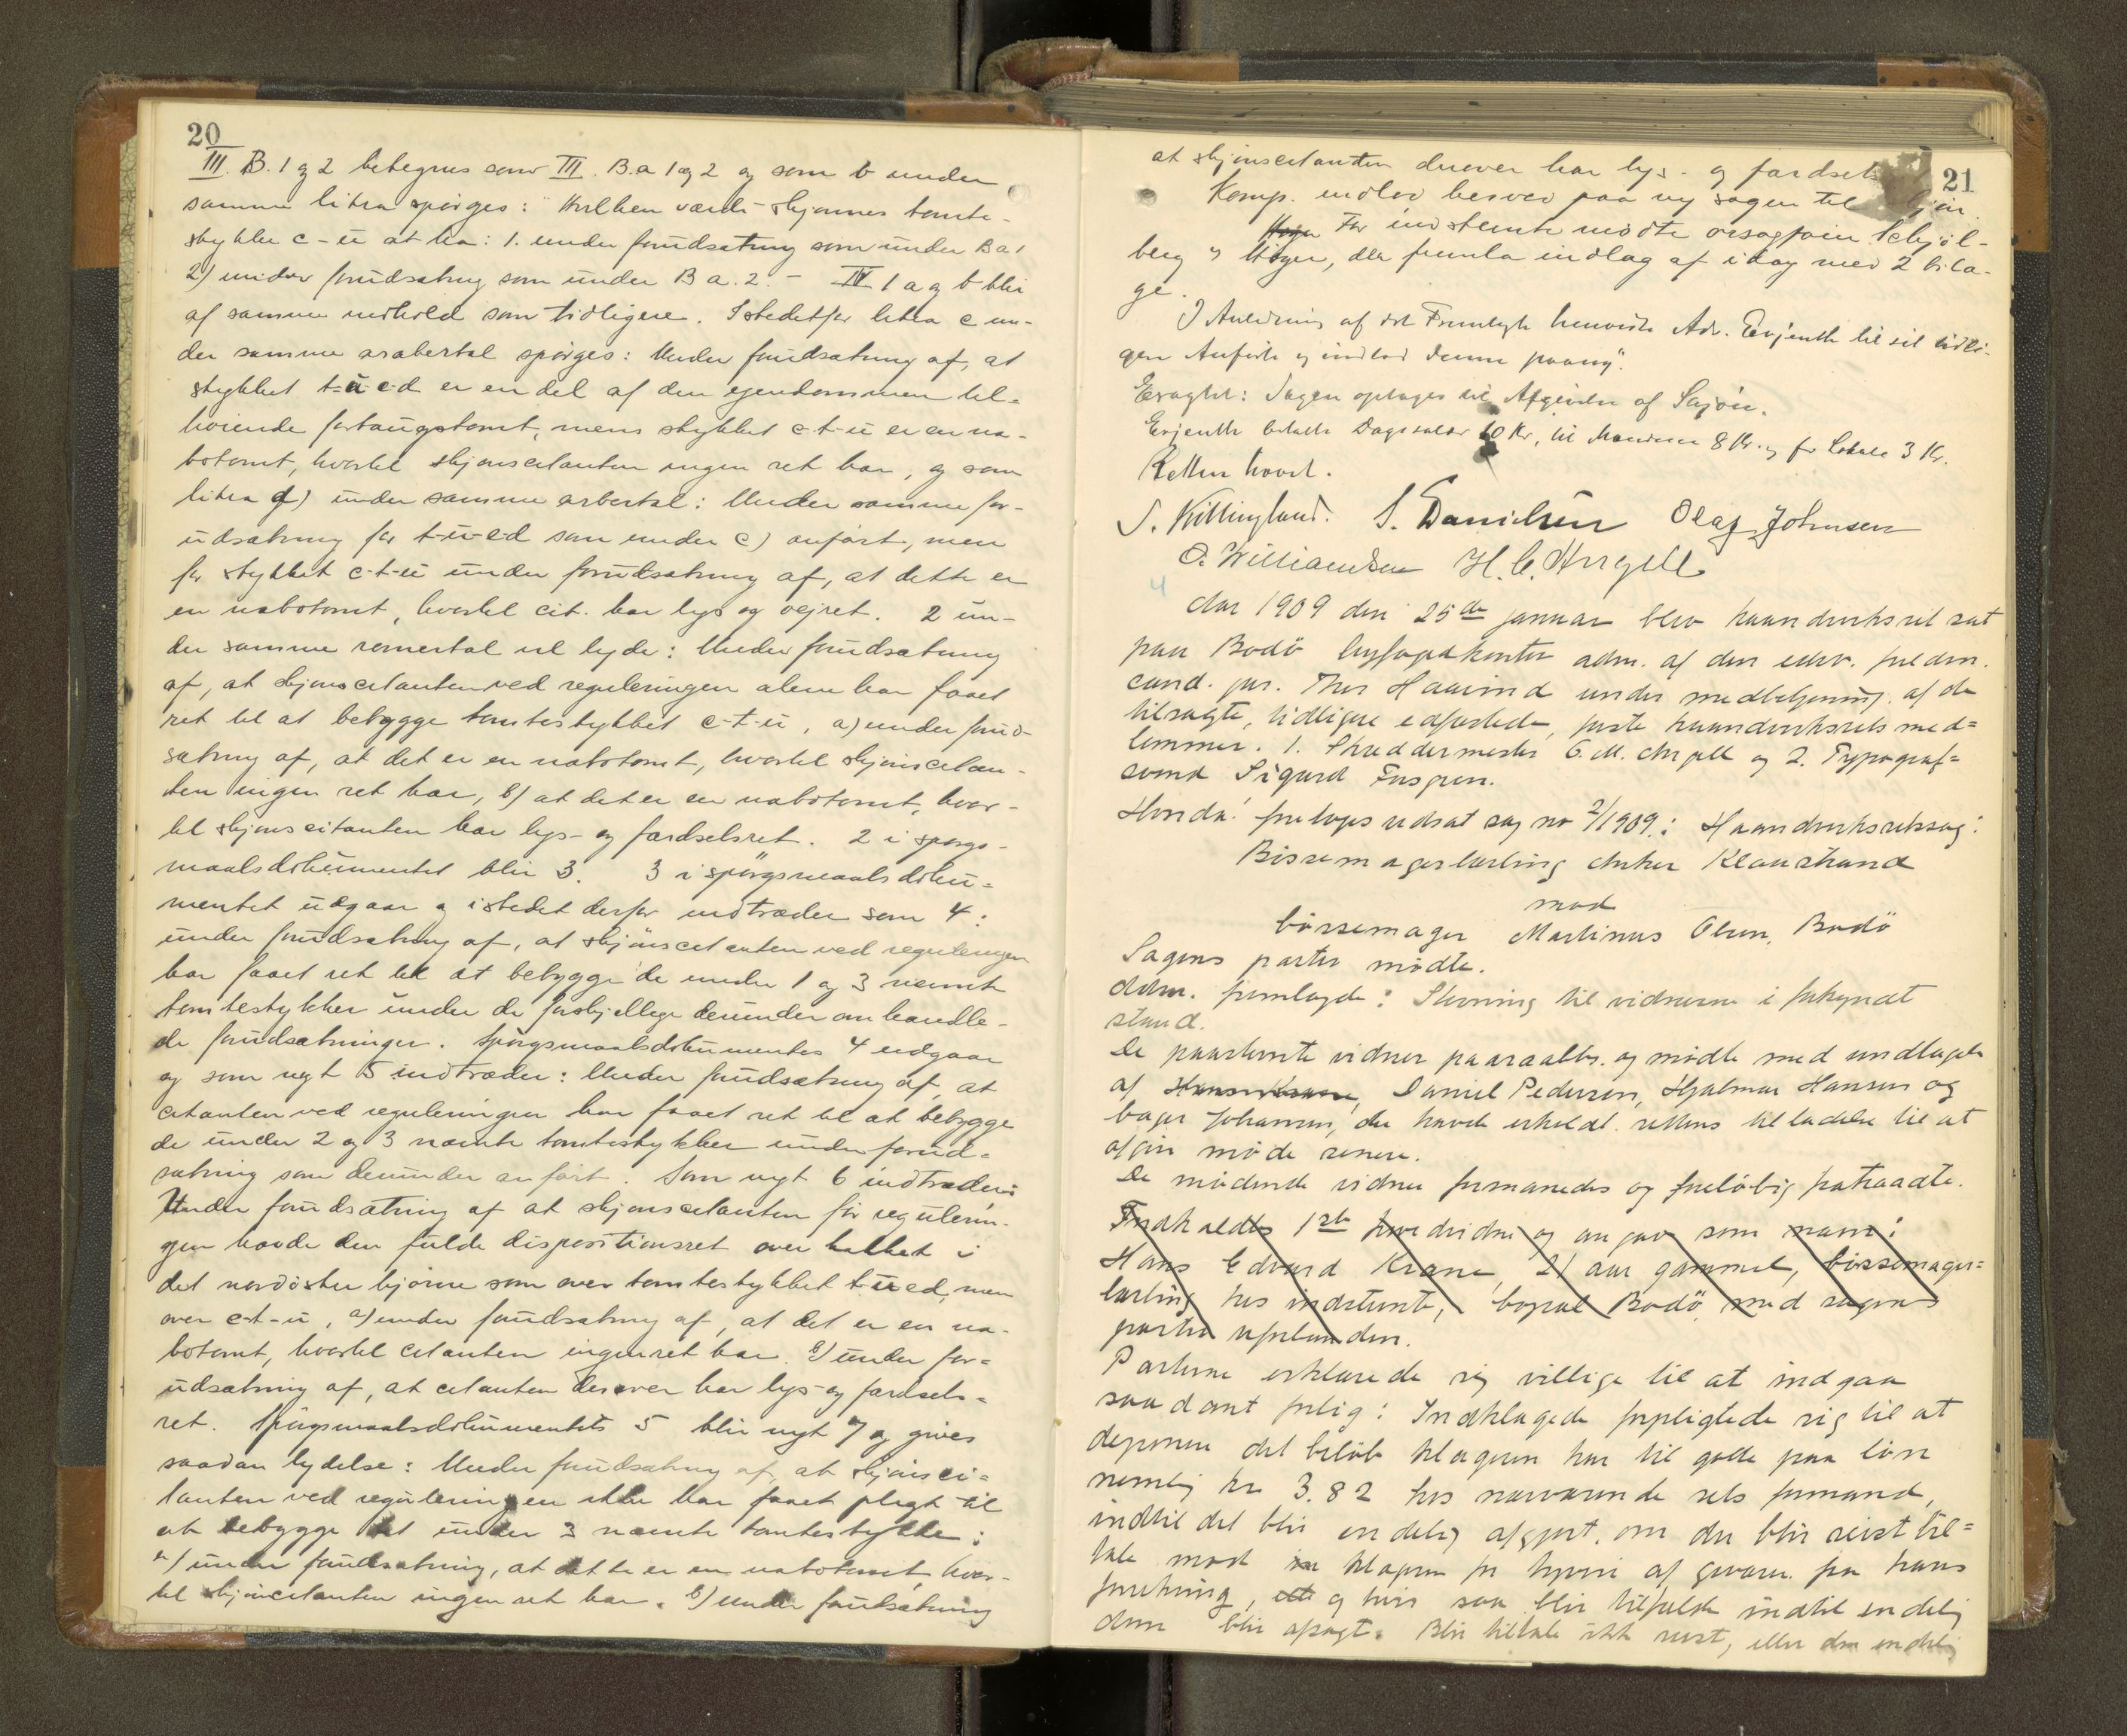 20
III. B. 1 og 2 betegnes som III. B. a 1 og 2 og som b under
samme litra spörges: Hvilken værdi skjönnes tomte-
stykke c-ü at ha: 1. under forudsætning som under B a 1
2) under forudsætning som under B a. 2. - IV 1 a og b blir
af samme indhold som tidligere. Istedetfor litra c un-
der samme arabertal spörges: Under forudsætning af, at
stykket t-ü-c-d er en del af den ejendommen til-
hörende fortaugstomt, mens stykket c-t-ü er en na-
botomt, hvortil skjönscitanten ingen ret har, og som
litra d) under samme arbertal: Under samme for-
udsætning for t-ü-c-d som under c) anfört, men
for stykket c-t-ü under forudsætning af, at dette er
en nabotomt, hvortil cit. har lys og vejret. 2 un-
der samme romertal vil lyde: Under forudsætning
af, at skjönscitanten ved reguleringen alene har faaet
ret til at bebygge tomtestykket c-t-ü, a) under forud-
sætning af, at det er en nabotomt, hvortil skjönscitan-
ten ingen ret har, b) at det er en nabotomt, hvor-
til skjönscitanten har lys- og færdselsret. 2 i spörgs-
maalsdokumentet blir 3. 3 i spörgsmaalsdoku-
mentet udgaar og istedet derfor indtræder som 4:
under forudsætning af, at skjönscitanten ved reguleringen
har faaet ret til at bebygge de under 1 og 3 nævnte
tomtestykker under de forskjellige derunder omhandle-
de forudsætninger. Spörgsmaalsdokumentes 4 udgaar
og som nyt 5 indtræder: Under forudsætning af, at
citanten ved reguleringen har faaet ret til at bebygge
de under 2 og 3 nævnte tomtestykker under forud-
sætning som derunder anfört. Som nyt 6 indtræder:
Under forudsætning af at skjönscitanten för regulerin-
gen havde den fulde dispositionsret over
det nordöstre hjörne som over tomtestykket t-ü-c-d, men
over c-t-ü, a) under forudsætning af, at det er en na-
botomt, hvortil citanten ingen ret har. b) under for-
udsætning af, at citanten derover har lys- og færdsels-
ret. Spörgsmaalsdokumentets 5 blir nyt 7 og gives
saadan lydelse: Under forudsætning af, at skjönsci-
tanten ved reguleringen ikke har faaet pligt til
at bebygge det under 3 nævnte tomtestykke:
a) under forudsætning, at dette er en nabotomt, hvor-
til skjöncitanten ingen ret har. b) under forudsætning
21
at skjönscitanten derover har lys- og færdsel
Komp. indlod herved paa ny sagen til
For indstevnte mödte orsagförer Schjöl-
berg og Höyer, der fremla indlæg af idag med 2 bila-
ge.
I Anledning af det Fremlagte henviste Adv. Evjenth til sit tidli-
gere Anförte og indlod denne paany.
Eragtet: Sagen optages til Afgivelse af Skjön.
Evjenth betalte Dagssalær 10 Kr, til Mændene 8 Kr. og for Lokale 3 Kr.
Retten hævet.
S. Killingland. S. Danielsen Olaf Johnsen
O. Williamsen H. C. Angell
4
Aar 1909 den 25de januar blev haandverksret sat
paa Bodö byfogdkontor adm. af den edsv. fuldm.
cand. jur. Thor Haavind under medbetjening af de
tilsagte, tidligere edfæstede, faste haandverksrets med=
lemmer. 1. Skreddermester C. M. Angell og 2. Typograf=
svend Sigurd Forsgren.
Hvorda! foretoges udsat sag no 2/1909: Haandverksretssag:
Bössemagerlærling Anker Klaushand
mod
bössemager Martinus Olsen, Bodö
Sagens parter mödte.
Adm. fremlagde: Stevning til vidnerne i forkyndt
stand.
De paastevnte vidner paaraabtes og mödte med undtagelse
af Daniel Pedersen, Hjalmar Hansen og
bager Johansen, der havde erholdt rettens tilladelse til at
afgive möde senere.
De mödende vidner formanedes og foreløbig fratraadte.
Fremkaldtes 1ste hovedvidne og angav som navn:
Hans Edvard Krane, 21 aar gammel, bössemager=
lærling hos indstevnte, bopæl Bodö, med sagens
parter ubeslægtet.
Parterne erklærede sig villige til at indgaa
saadant forlig: Indklagede forpligtede sig til at
deponere det belöb klageren har til gode paa lön
nemlig kr 3.82 hos nærværende rets formand,
indtil det blir endelig afgjort, om der blir reist til=
tale mod klageren for tyveri af gevær fra hans
forretning, og hvis saa blir tilfælde indtil endelig
dom blir afsagt. Blir tiltale ikke reist, eller den endelig